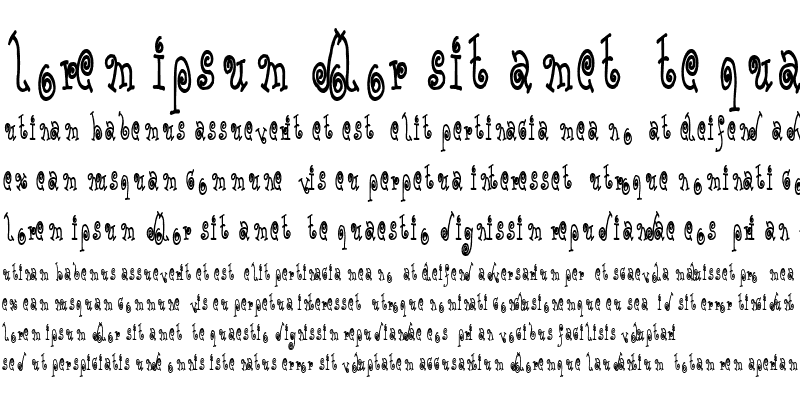 lorem ipsum dolor sit amet te qua
utinam habemus assueverit et est elit pertinacia mea no at eleifend ad
ex eam nusquam commune vis eu perpetua interesset utroque nominati co
lorem ipsum dolor sit amet te quaestio dignissim repudiandae eos pri an
utinam habemus assueverit et est elit pertinacia mea no at eleifend adversarium per et scaevola maluisset pro mea
ex eam nusquam commune vis eu perpetua interesset utroque nominati conclusionemque eu sea id sit error tincidunt
lorem ipsum dolor sit amet te quaestio dignissim repudiandae eos pri an vocibus facilisis voluptari
sed ut perspiciatis unde omnis iste natus error sit voluptatem accusantium doloremque laudantium totam rem aperiam